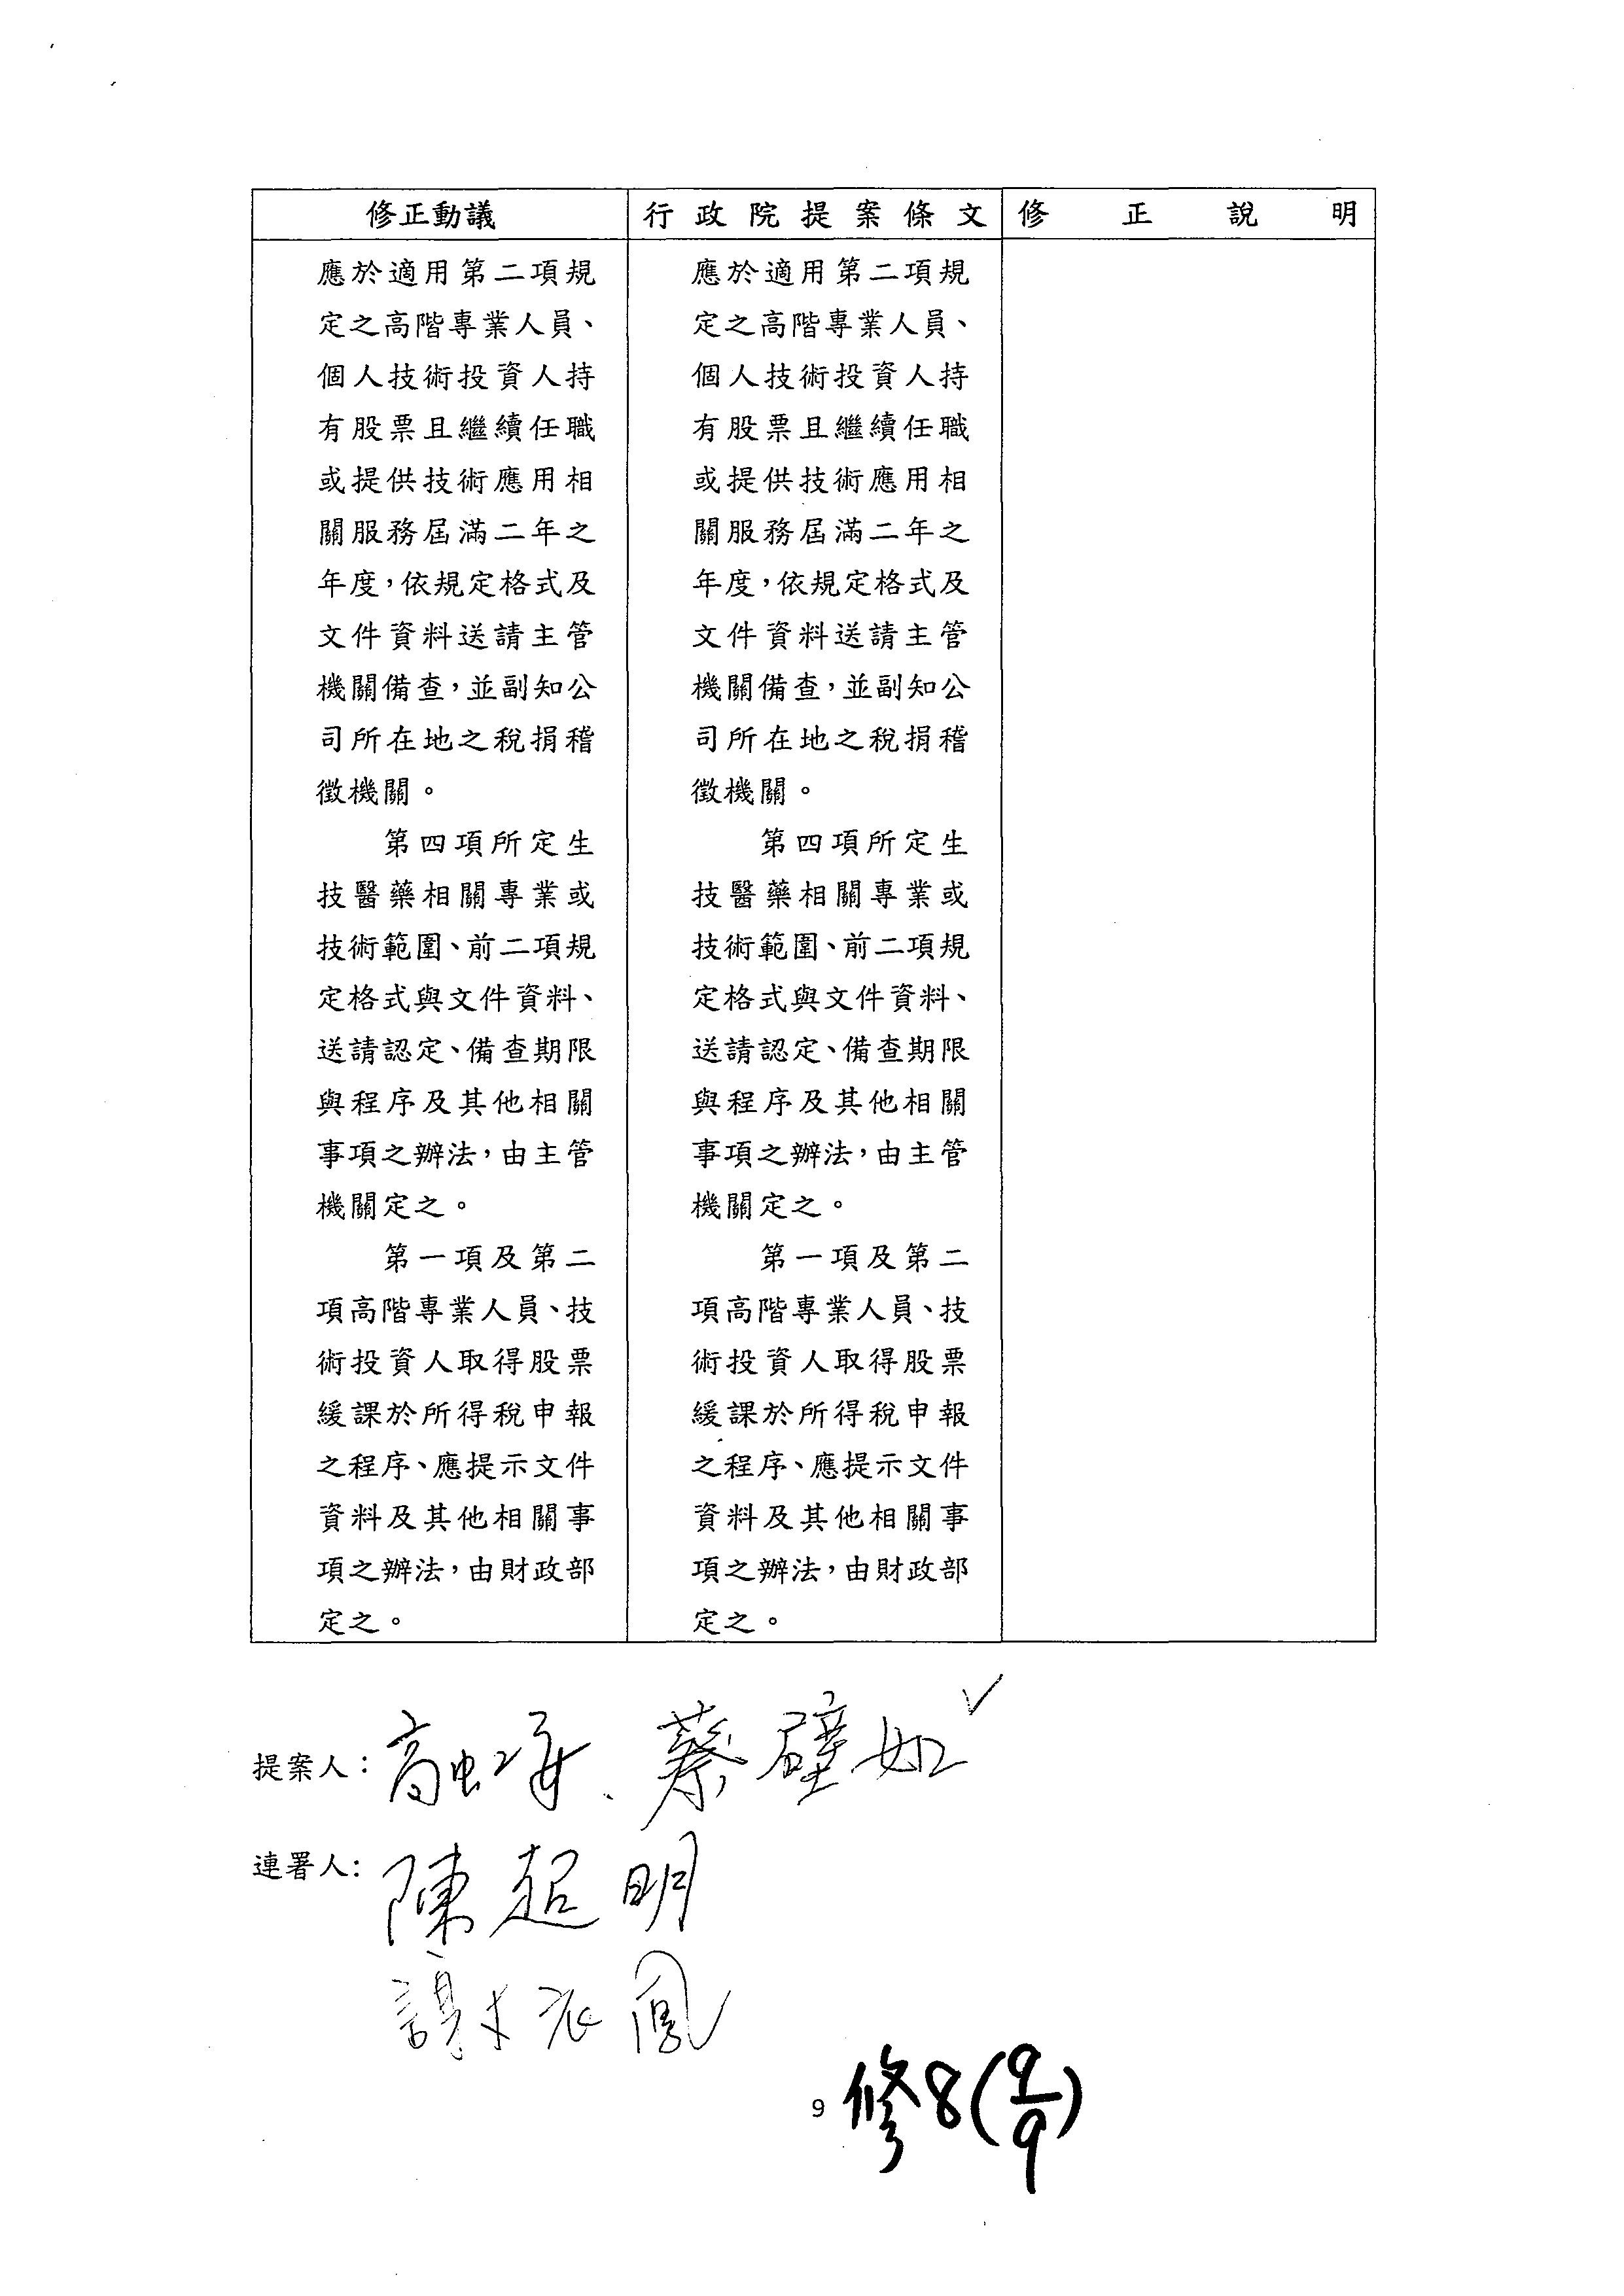 修正動議
應於適用第二項規
定之高階專業人員、
個人技術投資人持
有股票且繼續任職
或提供技術應用相
關服務屆滿二年之
年度,依規定格式及
文件資料送請主管
機關備查,並副知公
司所在地之稅捐稽
徵機關。
第四項所定生
技醫藥相關專業或
技術範圍、前二項規
定格式與文件資料、
送請認定、備查期限
與程序及其他相關
事項之辦法,由主管
機關定之。
第一項及第二
項高階專業人員、技
術投資人取得股票
緩課於所得稅申報
之程序、應提示文件
資料及其他相關事
項之辦法,由財政部
定之。
行政院提案條文
應於適用第二項規
定之高階專業人員、
個人技術投資人持
有股票且繼續任職
或提供技術應用相
關服務屆滿二年之
年度,依規定格式及
文件資料送請主管
機關備查,並副知公
司所在地之稅捐稽
徵機關。
第四項所定生
技醫藥相關專業或
技術範圍、前二項規
定格式與文件資料、
送請認定、備查期限
與程序及其他相關
事項之辦法,由主管
機關定之。
第一項及第二
項高階專業人員、技
術投資人取得股票
緩課於所得稅申報
之程序、應提示文件
資料及其他相關事
項之辦法,由財政部
定之。
修正說明
提案人:高虹安、蔡壁如
連署人:陳超明
謝衣鳳
9 修8(9/9)